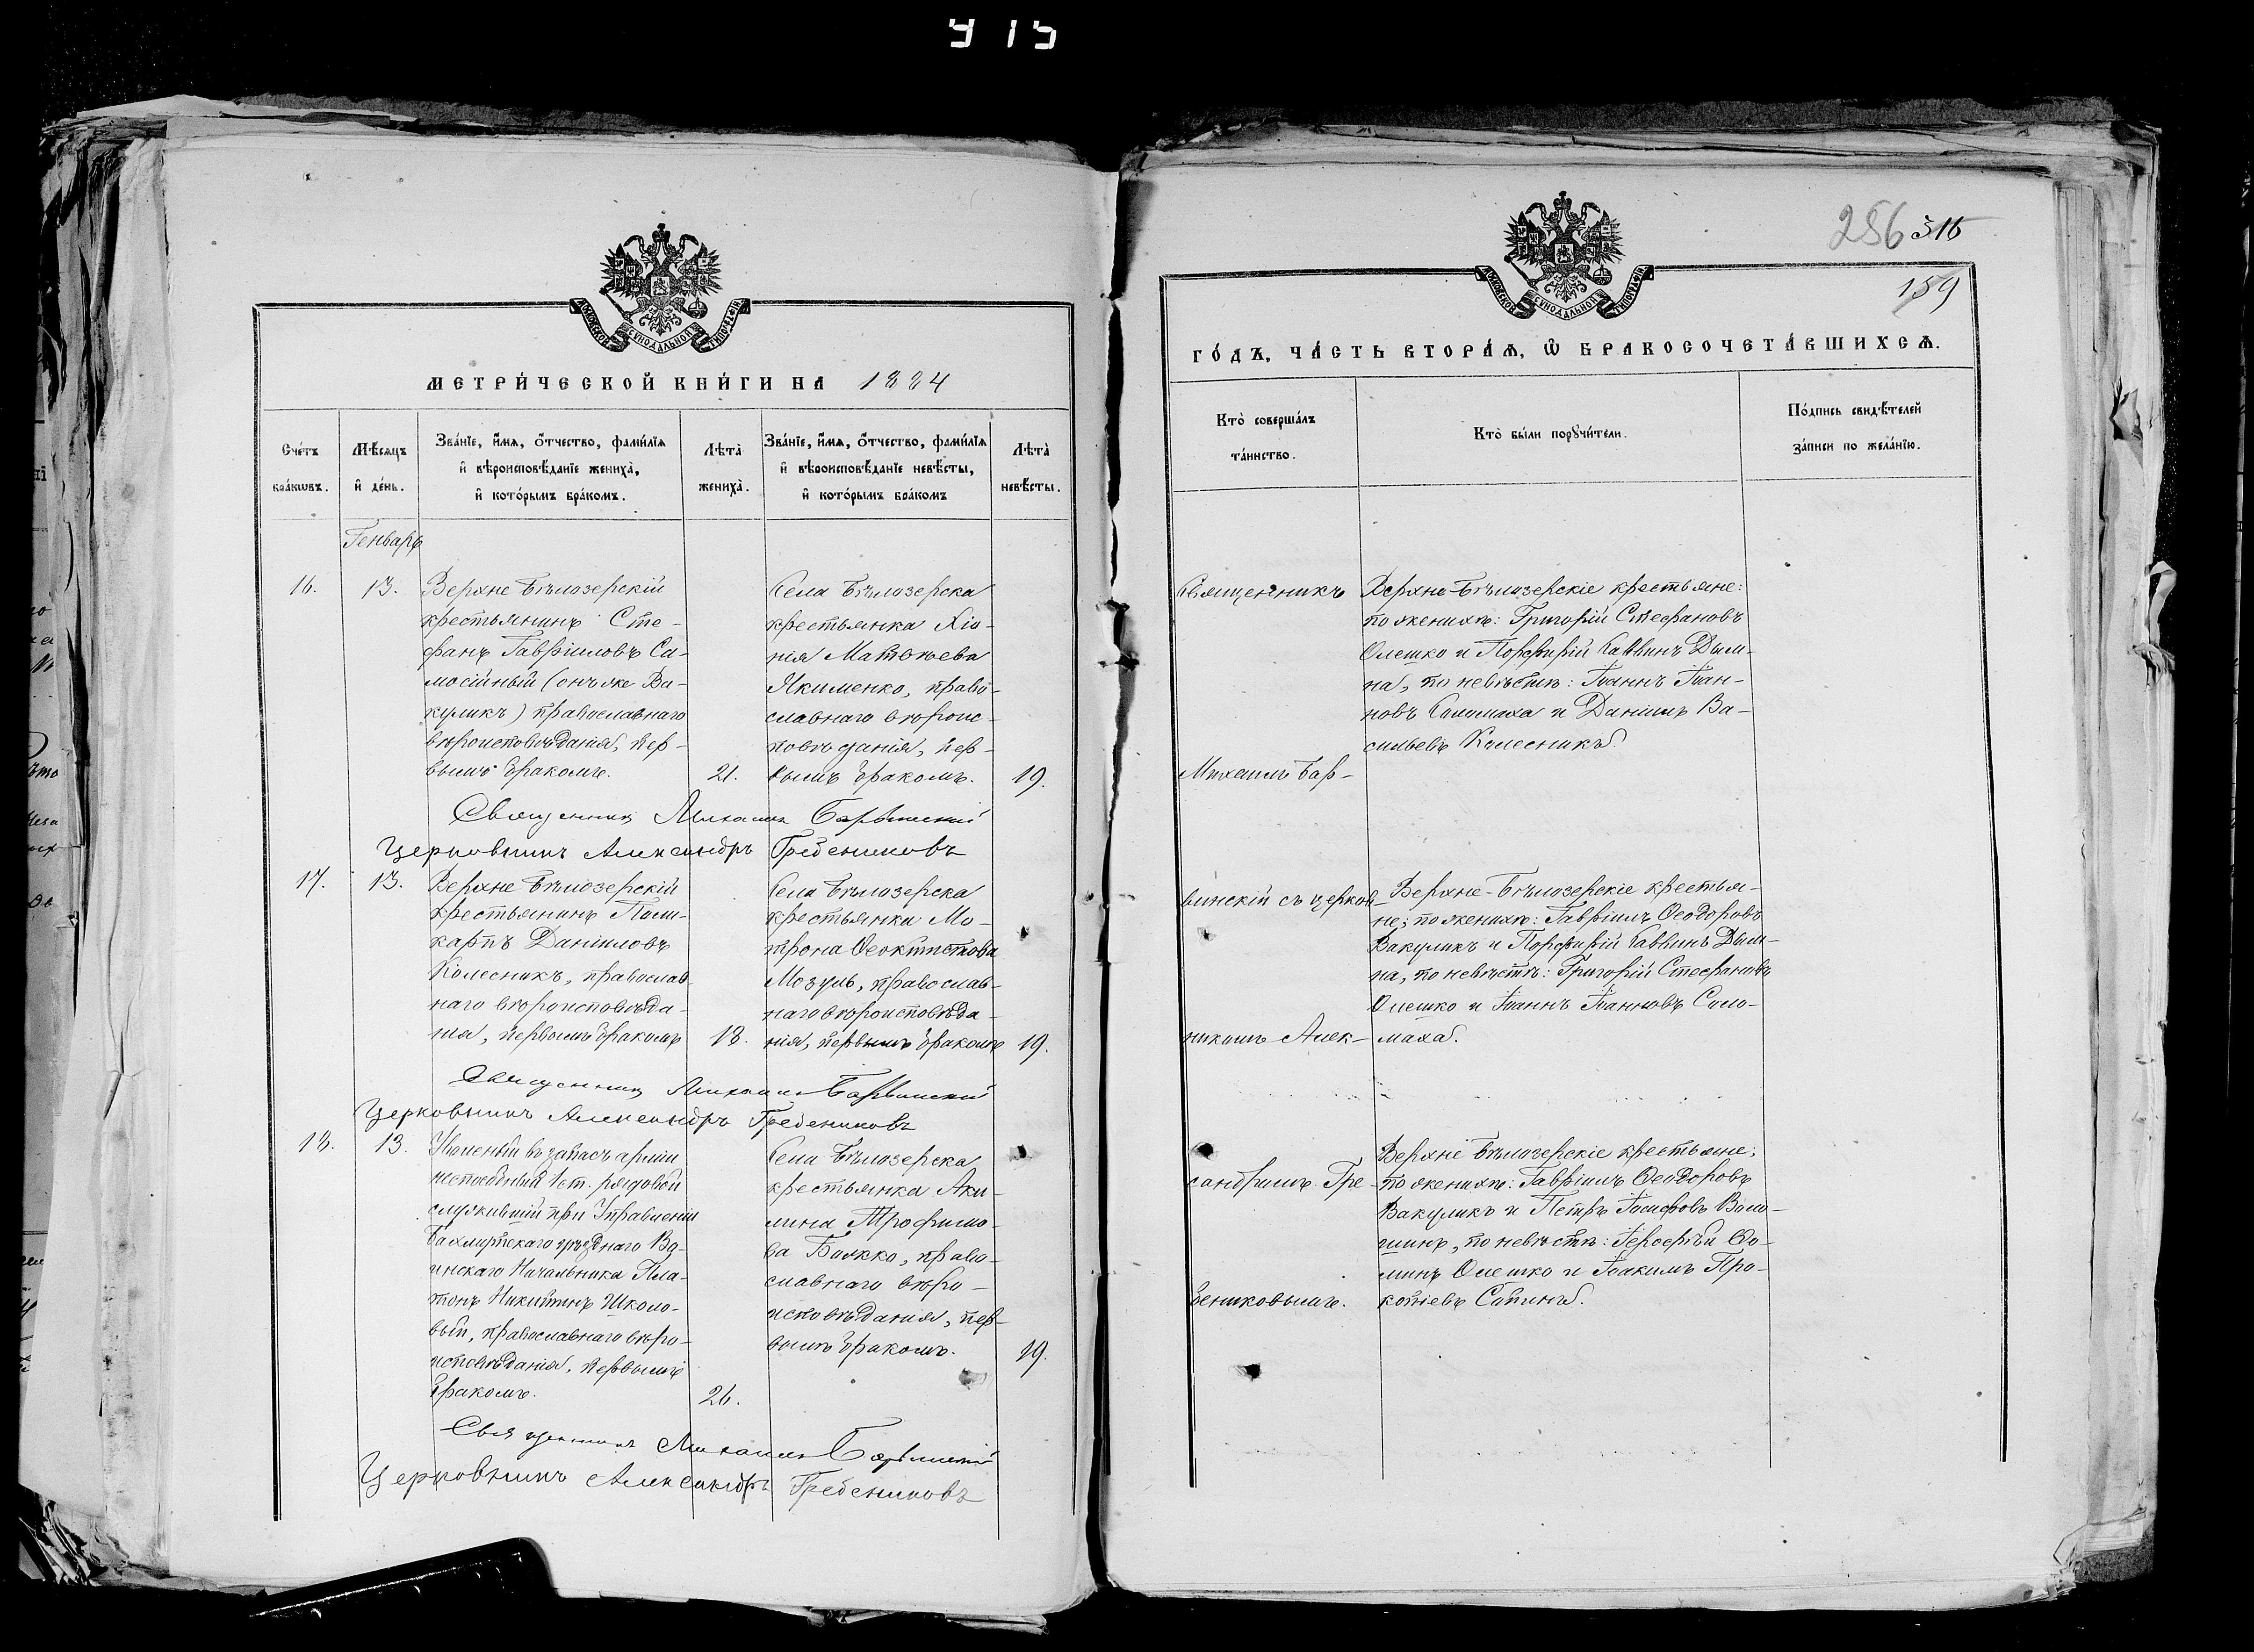 915
286 316
159
МОСКОВСКОЙ СѴНОДАЛЬНОЙ ТИПОГРАФІИ
МЕТРИ́ЧЕСКОЙ КНИ́ГИ НА 1884
Сче́тъ бра́кѡвъ.
Мѣ́сяцъ и҆ де́нь.
Зва́нїе, и҆́мѧ, ѻ҆́тчество, фами́лїѧ
и҆ вѣроисповѣ́данїе жениха̀,
и҆ кото́рымъ бра́комъ.
Лѣта̀ жениха̀.
Зва́нїе, и҆́мѧ, ѻ҆́тчество, фами́лїѧ
и҆ вѣроисповѣ́данїе невѣ́сты,
и҆ кото́рымъ бра́комъ
Лѣта̀ невѣ́сты.
Генварь
16.
13.
Верхне Бѣлозерскій
крестьянинъ Сте-
фанъ Гавріиловъ Са-
мосійный (онъ же Ва-
куликъ) православнаго
вѣроисповѣданія, пер-
вымъ бракомъ.
21.
Села Бѣлозерска
крестьянка Хіо-
нія Матѳѣева
Якименко, право-
славнаго вѣроис-
повѣданія, пер-
вымъ бракомъ.
19.
Священникъ Михаилъ Барвинскій
Церковникъ Александръ Гребениковъ
17.
13.
Верхне Бѣлозерскій
крестьянинъ Поли-
карпъ Даніиловъ
Колесникъ, православ-
наго вѣроисповѣда-
нія, первымъ бракомъ
18.
Села Бѣлозерска
крестьянка Мо-
трона Ѳеоктистова
Мозуль, православ-
наго вѣроисповѣда-
нія, первымъ бракомъ
19.
Священникъ Михаилъ Барвинскій
Церковникъ Александръ Гребениковъ
18.
13.
Уволеный въ запасъ арміи
неспособный 1 ст. рядовой
служившій при Управленіи
Бахмутскаго уѣзднаго Во-
инскаго Начальника Пла-
тонъ Никитинъ Школо-
вый, православнаго вѣро-
исповѣданія, первымъ
бракомъ.
26.
Села Бѣлозерска
крестьянка Аки-
лина Трофимо-
ва Божко, право-
славнаго вѣро-
исповѣданія, пер-
вымъ бракомъ.
19.
Священникъ Михаилъ Барвинскій
Церковникъ Александръ Гребениковъ
МОСКОВСКОЙ СѴНОДАЛЬНОЙ ТИПОГРАФІИ
ГО́ДЪ, ЧА́СТЬ ВТОРА́Ѧ, Ѽ БРАКОСОЧЕТА́ВШИХСѦ.
Кто̀ соверша́лъ
та́инство.
Кто̀ бы́ли порꙋчи́тели.
По́дпись свидѣ́телей
за́писи по жела́нїю.
Священникъ
Михаилъ Бар-
винскій съ церков-
никомъ Алек-
сандромъ Гре-
бениковымъ.
Верхне-Бѣлозерскіе крестьяне:
по женихѣ: Григорій Стефановъ
Олешко и Порфирій Саввинъ Дым-
на, по невѣстѣ: Іоаннъ Іоан-
новъ Соломаха и Даніилъ Ва-
сильевъ Колесникъ.
Верхне-Бѣлозерскіе крестья-
не; по женихѣ: Гавріилъ Ѳеодоровъ
Вакуликъ и Порфирій Саввинъ Дым-
на, по невѣстѣ: Григорій Стефановъ
Олешко и Іоаннъ Іоанновъ Соло-
маха.
Верхне Бѣлозерскіе крестьяне;
по женихѣ: Гавріилъ Ѳеодоровъ
Вакуликъ и Петръ Іосифовъ Воло-
шинъ, по невѣстѣ: Ѳо-
минъ Олешко и Іоакимъ Про-
копіевъ Сапинъ.